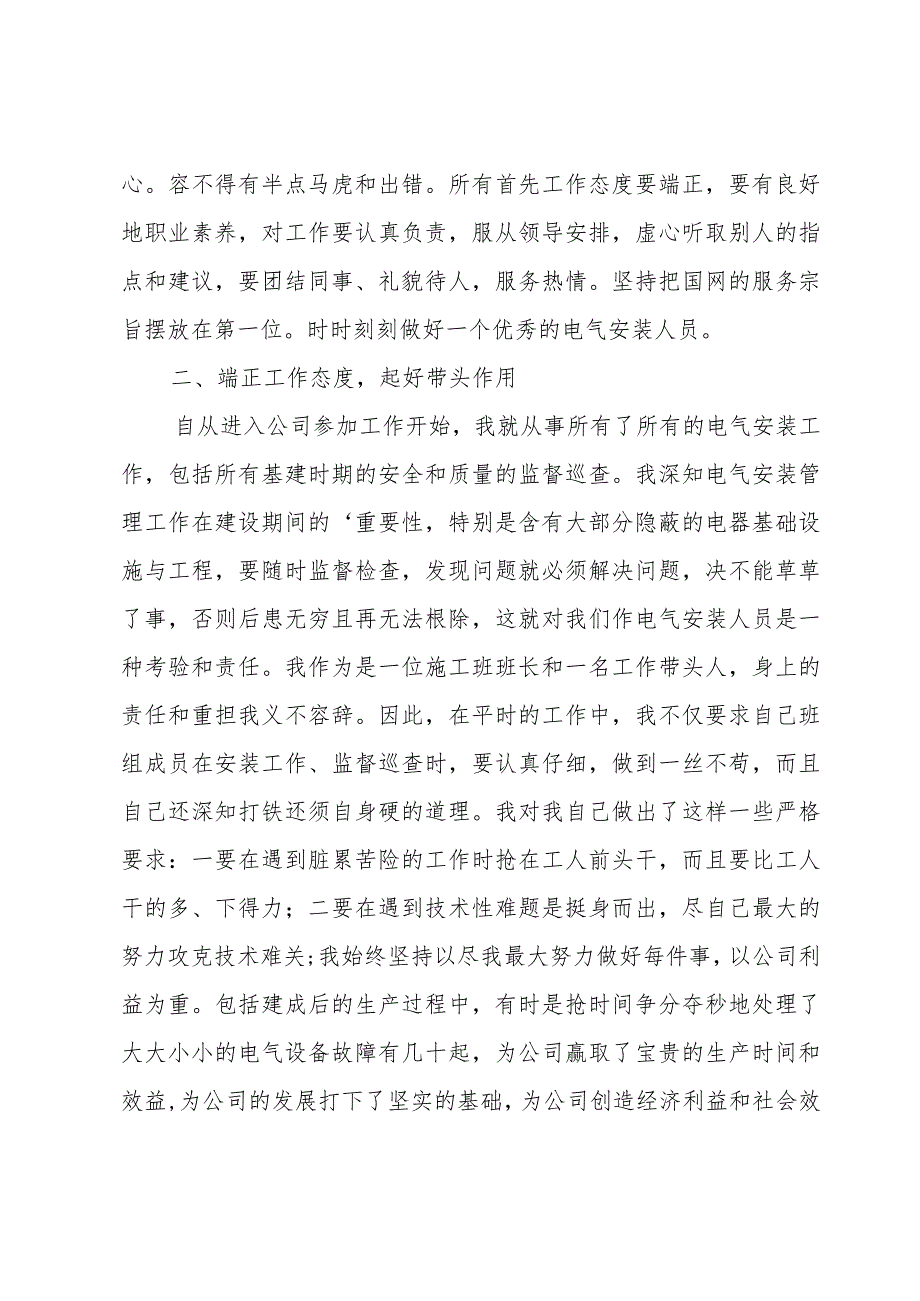 心。容不得有半点马虎和出错。所有首先工作态度要端正，要有良好
地职业素养，对工作要认真负责，服从领导安排，虚心听取别人的指
点和建议，要团结同事、礼貌待人，服务热情。坚持把国网的服务宗
旨摆放在第一位。时时刻刻做好一个优秀的电气安装人员。
二、端正工作态度，起好带头作用
自从进入公司参加工作开始，我就从事所有了所有的电气安装工
作，包括所有基建时期的安全和质量的监督巡查。我深知电气安装管
理工作在建设期间的‘重要性，特别是含有大部分隐蔽的电器基础设
施与工程，要随时监督检查，发现问题就必须解决问题，决不能草草
了事，否则后患无穷且再无法根除，这就对我们作电气安装人员是一
种考验和责任。我作为是一位施工班班长和一名工作带头人，身上的
责任和重担我义不容辞。因此，在平时的工作中，我不仅要求自己班
组成员在安装工作、监督巡查时，要认真仔细，做到一丝不苟，而且
自己还深知打铁还须自身硬的道理。我对我自己做出了这样一些严格
要求：一要在遇到脏累苦险的工作时抢在工人前头干，而且要比工人
干的多、下得力；二要在遇到技术性难题是挺身而出，尽自己最大的
努力攻克技术难关;我始终坚持以尽我最大努力做好每件事，以公司利
益为重。包括建成后的生产过程中，有时是抢时间争分夺秒地处理了
大大小小的电气设备故障有几十起，为公司赢取了宝贵的生产时间和
效益,为公司的发展打下了坚实的基础，为公司创造经济利益和社会效